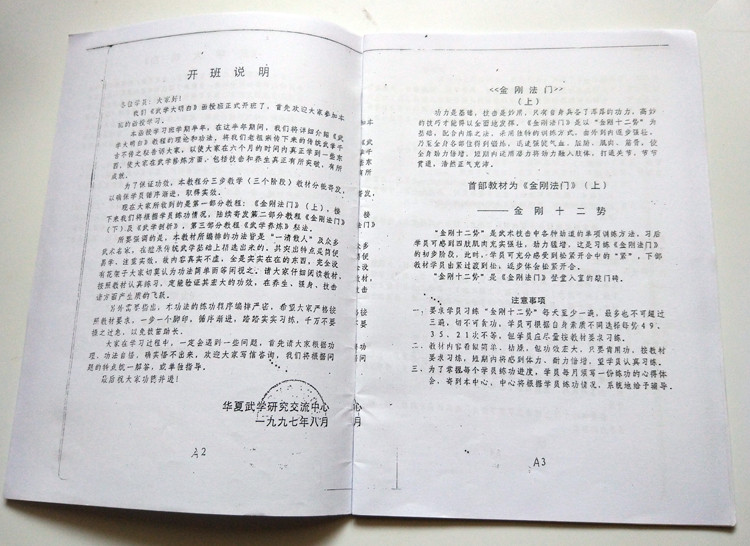 开班说明
各位学员：大家好！
我们《武学大明白》函校班正式开班了，首先欢迎大家参加本
函授学习。
本函授学习班学期半年，在这半年期间，我们将详细介绍《武
学大明白》教程的理论和功法，将我们老祖宗传下来的传统武学千
古不传之秘告诉大家，以使大家在六个月的时间内真正学到一些东
西，使大家在武学修炼方面，包括技击和养生真正有所突破，有所
成就。
为了保证功效，本教程分三步教学（三个阶段）教材分批寄发，
以确保学员循序渐进，取得实效。
现在大家所收到的是第一部分教程：《金刚法门》（上），接
下来我们将根据学员练功情况，陆续寄发第二部分教程《金刚法门》
（下）及《武学剖析》，第三部分教程《武学养炼》秘法。
所要强调的是，本教材所编排的功法皆是“一清散人”及众多
武术名家，在继承传统武学基础上精选出来的。其突出特点是简便
易学，注重实效，故内容真实不虚，全是实实在在的东西，完全没
有花架子大家切莫认为功法简单而等闲视之。请大家仔细阅读教材，
按照教材认真练习，定能验证其宏大的功效，在养生、强身、技击
诸方面产生质的飞跃。
另外需要指出，本功法的练功程序编排严密，希望大家严格按
照教材要求，一步一个脚印，循序渐进，踏踏实实习练，千万不要
操之过急，以免拔苗助长。
大家在学习过程中，一定会遇到一些问题，首先请大家根据功
理、功法自悟，确实悟不出来，欢迎大家写信咨询，我们将根据问
题的特点统一解答，或单独指导。
最后祝大家功德并进！
华夏武学研究交流中心
一九九七年八月
A2
《金刚法门》
（上）
功力是基础，技击是妙用，只有自身具备了浑厚的功力，高妙
的技巧才能得以全面地发挥。《金刚法门》是以“金刚十二势”为
基础，配合内练之法，采用独特的训练方式，由外到内逐步强壮，
乃至全身各部位得到锻炼，迅速强健气血、脏腑、肌肉、筋骨，使
全身劲力倍增，短期内迅将潜力将劲力融入肢体，打通关节，节节
贯通，浩然正气充沛。
首部教材为《金刚法门》（上）
——金刚十二势
“金刚十二势”是武术技击中各种桩道的单项训练方法，习后
学员可感到四肢肌肉充实强壮，劲力猛增，这是习练《金刚法门》
的初步阶段。此时，学员可充分感受到松紧开合中的“紧”，下部
教材学员由紧过渡到松，逐步体会松紧开合。
“金刚十二势”是《金刚法门》登堂入室的敲门砖。
注意事项
一、要求学员习练“金刚十二势”每天至少一遍，最多也不可超过
三遍，切不可贪功，学员可根据自身素质不同选择每势49、
35、21次不等，但学员应尽量按教材要求习练。
二、教材内容看似简单、枯燥，但功效宏大，只要肯用功，按教材
要求习练，短期内将感到体力、耐力倍增，望学员认真习练。
三、为了掌握每个学员练功进度，学员每月须写一份练功的心得体
会，寄到本中心，中心将根据学员练功情况，系统地给予辅导。
A3